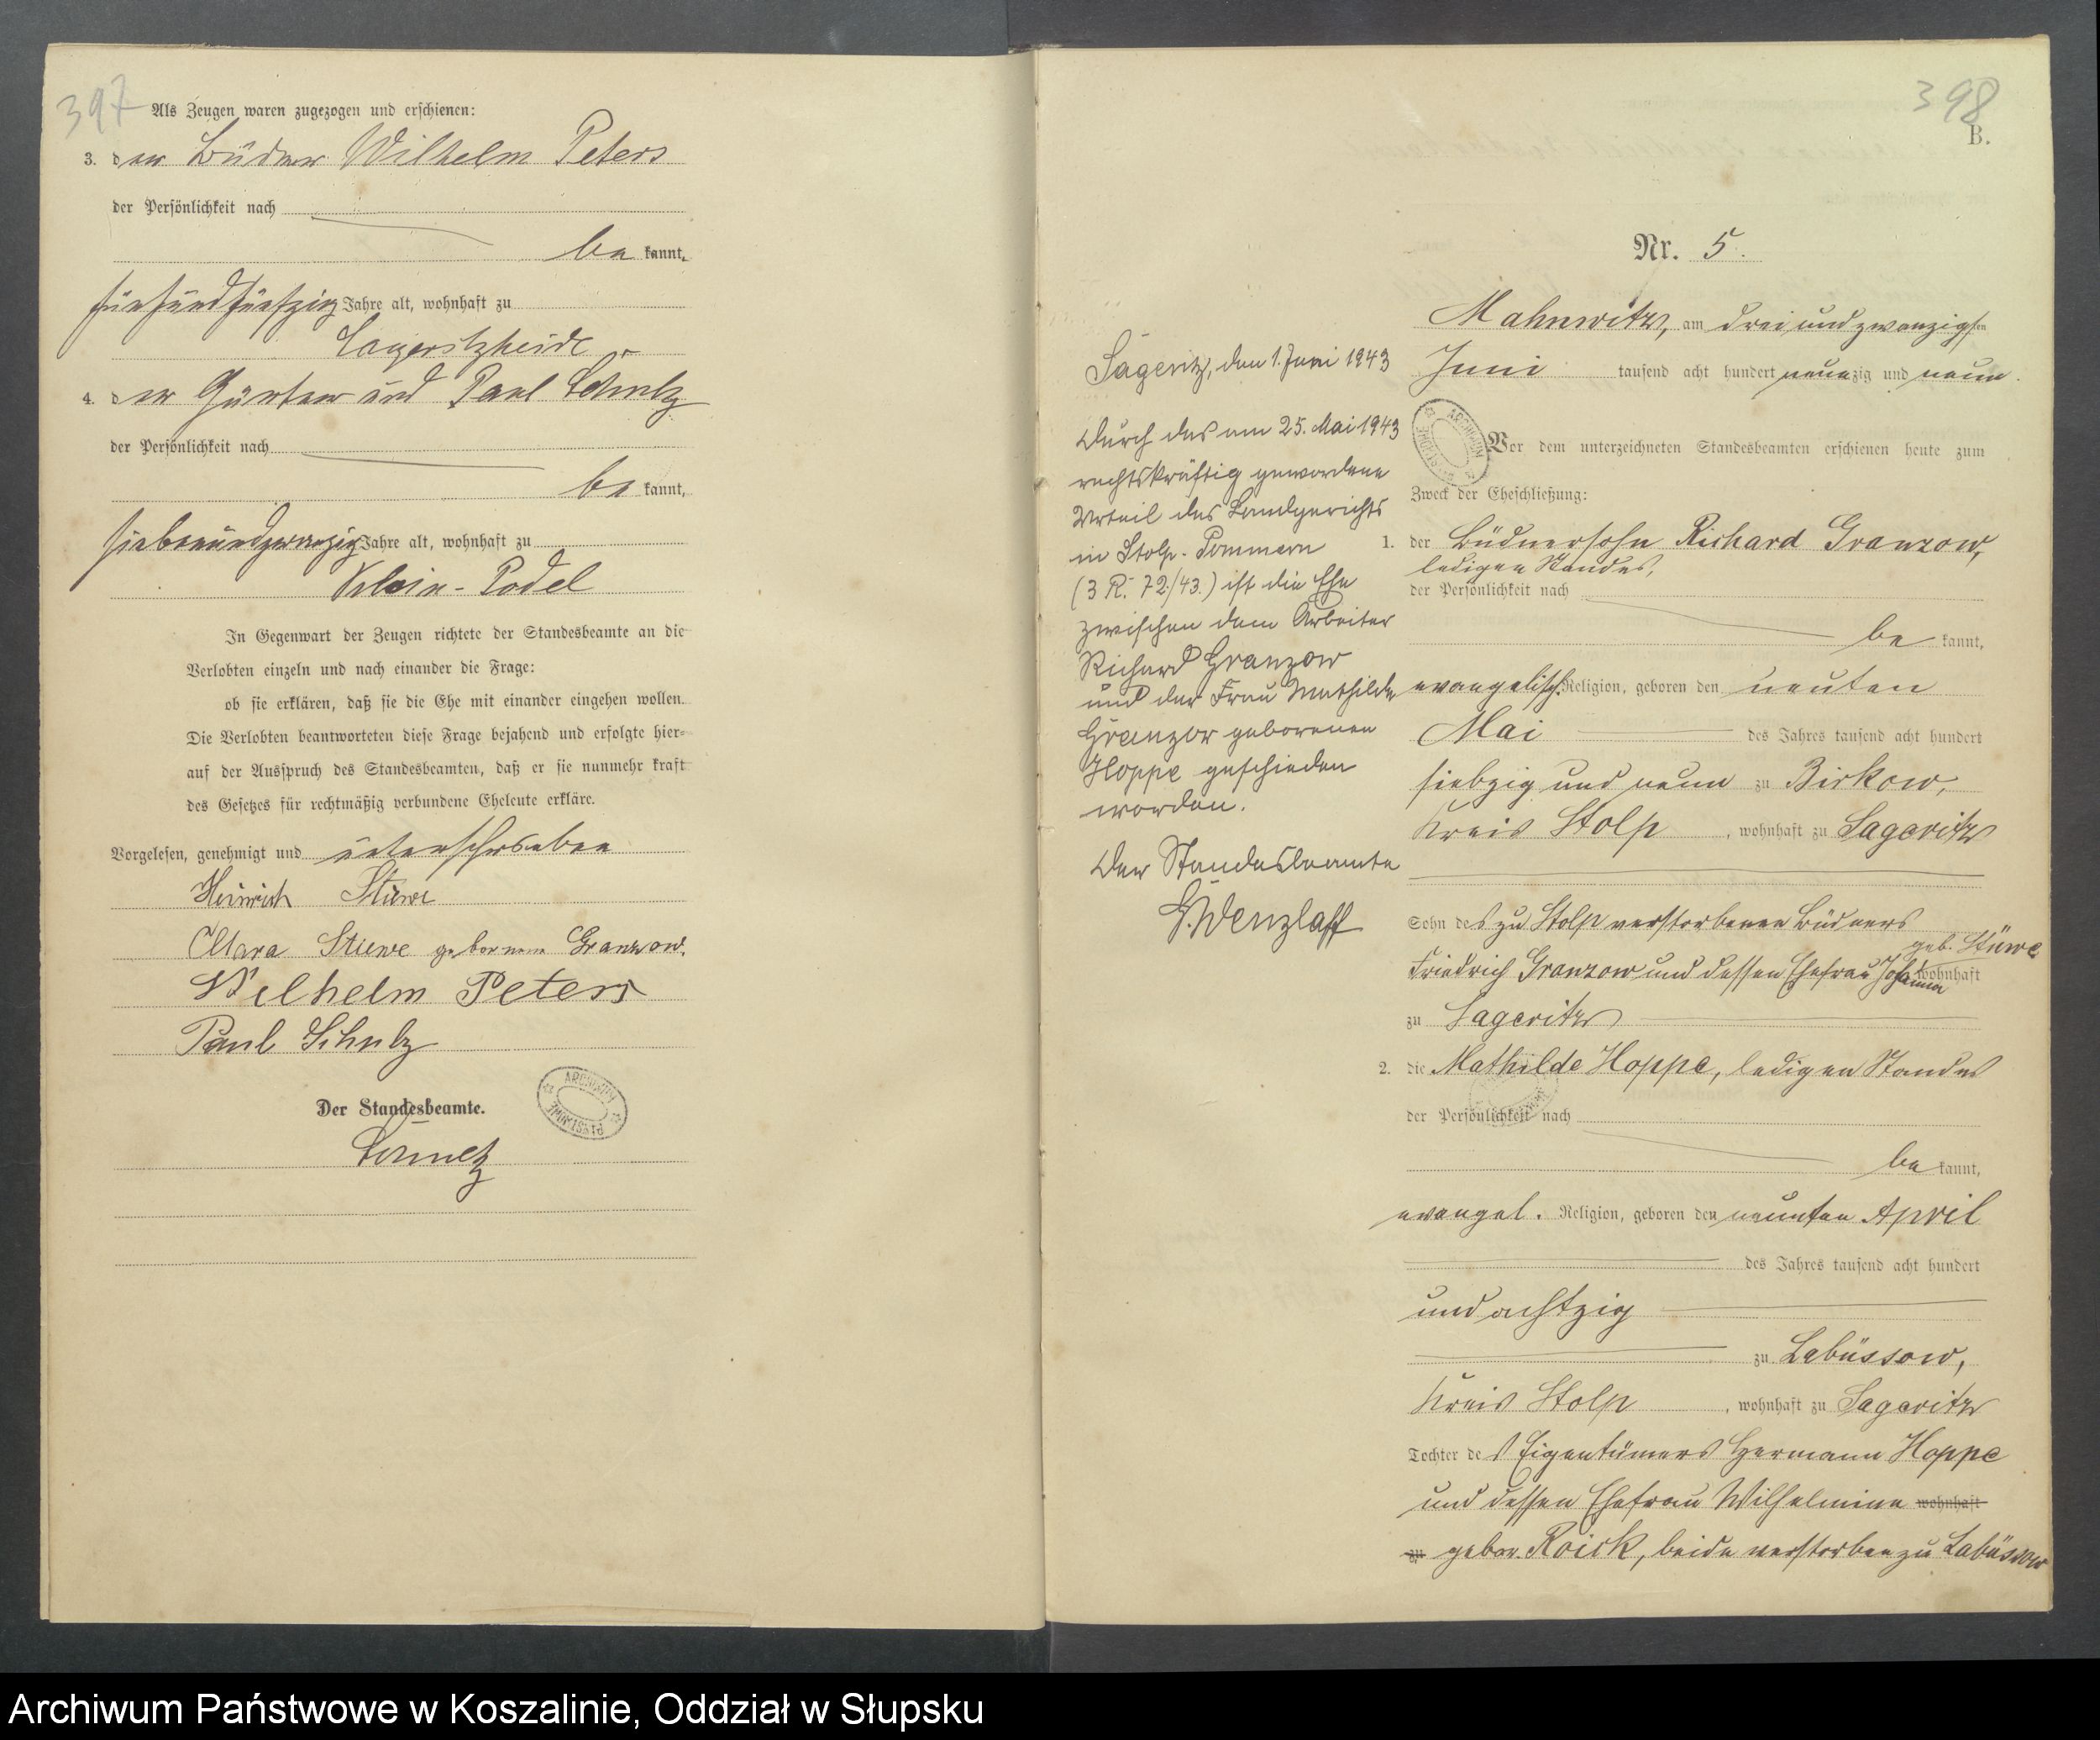 397
Als Zeugen waren zugezogen und erschienen:
3. der Büdner Wilhelm Peters
der Persönlichkeit nach
be kannt,
fünfundfünfzig Jahre alt, wohnhaft zu
4. der Paul Schulz
der Persönlichkeit nach
be kannt,
siebenundzwanzig Jahre alt, wohnhaft zu
Klein-Podel
In Gegenwart der Zeugen richtete der Standesbeamte an die
Verlobten einzeln und nach einander die Frage:
ob sie erklären, daß sie die Ehe mit einander eingehen wollen.
Die Verlobten beantworteten diese Frage bejahend und erfolgte hier-
auf der Ausspruch des Standesbeamten, daß er sie nunmehr kraft
des Gesetzes für rechtmäßig verbundene Eheleute erkläre.
Vorgelesen, genehmigt und unterschrieben
Heinrich Stüwe
Clara Stüwe gebornene Granzow.
Wilhelm Peters
Paul Schulz
Der Standesbeamte.
398
B.
Nr. 5.
Mahnwitz, am drei und zwanzigsten
Juni tausend acht hundert neunzig und neun.
Vor dem unterzeichneten Standesbeamten erschienen heute zum
Zweck der Eheschließung:
1. der Büdnersohn Richard Granzow,
ledigen Standes,
der Persönlichkeit nach
be kannt,
evangelisch. Religion, geboren den neunten
Mai des Jahres tausend acht hundert
siebzig und neun zu Birkow,
Kreis Stolp, wohnhaft zu Sageritz
Sohn des zu Stolp verstorbenen Büdners
Friedrich Granzow und dessen Ehefrau Johanna geb. Stüwe wohnhaft
zu Sageritz
2. die Mathilde Hoppe, ledigen Standes
der Persönlichkeit nach
be kannt,
evangel. Religion, geboren den neunten April
des Jahres tausend acht hundert
und achtzig
zu Labüssow,
Kreis Stolp, wohnhaft zu Sageritz
Tochter des Eigentümers Hermann Hoppe
und dessen Ehefrau Wilhelmine wohnhaft
zu gebor. Roick, beide verstorben zu Labüssow
Sageritz, den 1. Juni 1943
Durch das am 25. Mai 1943
rechtskräftig gewordene
Urteil des Landgerichts
in Stolp-Pommern
(3 R. 72/43.) ist die Ehe
zwischen dem Arbeiter
Richard Granzow
und der Frau Mathilde
Granzow geborenen
Hoppe geschieden
worden.
Der Standesbeamte
G. Wenzlaff
Archiwum Państwowe w Koszalinie, Oddział w Słupsku